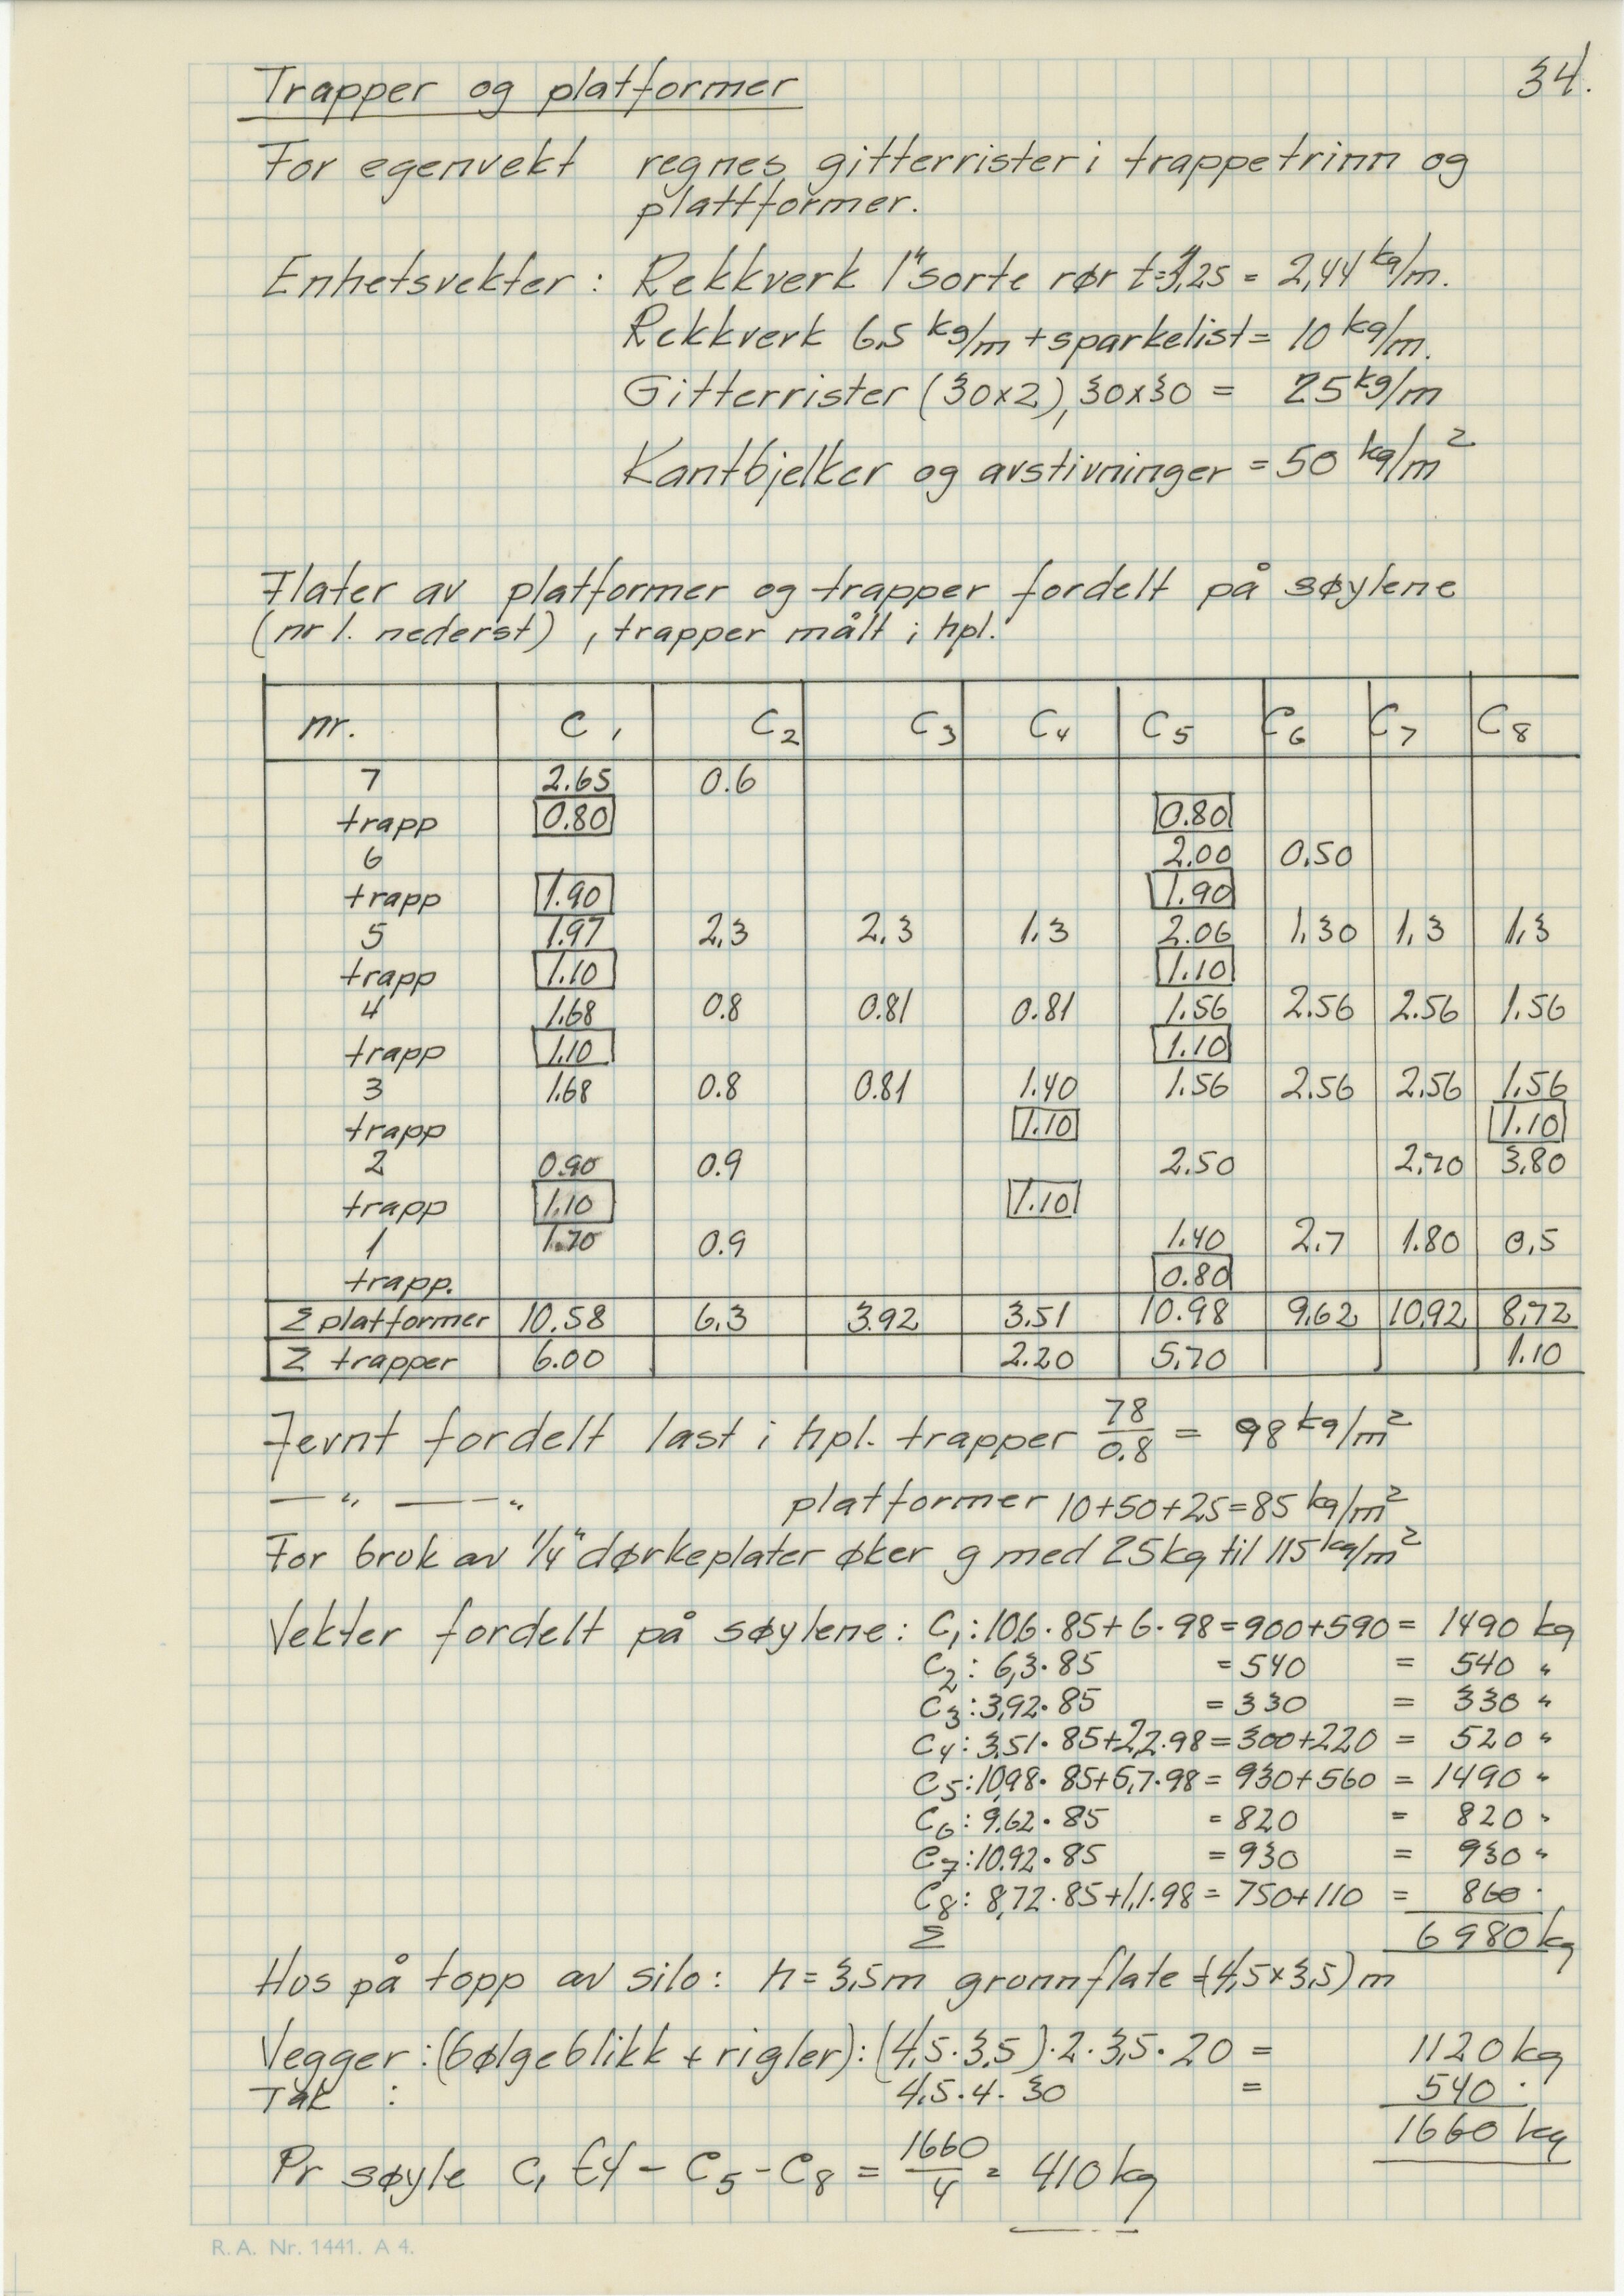 34.
Trapper og platformer
For egenvekt regnes gitterrister i trappetrinn og
plattformer.
Enhetsvekter : Rekkverk 1" sorte rør t=3,25 = 2,44 kg/m.
Rekkverk 6,5 kg/m + sparkelist = 10 kg/m.
Gitterrister (30x2), 30x30 = 25 kg/m
Kantbjelker og avstivninger = 50 kg/m²
Flater av platformer og trapper fordelt på søylene
(nr 1. nederst) , trapper målt i hpl.
nr. C1 C2 C3 C4 C5 C6 C7 C8
7 2.65 0.6
trapp 0.80 0.80
6 2.00 0,50
trapp 1.90 1.90
5 1.97 2,3 2,3 1,3 2.06 1,30 1,3 1,3
trapp 1.10 1.10
4 1.68 0.8 0.81 0.81 1.56 2.56 2.56 1.56
trapp 1.10 1.10
3 1.68 0.8 0.81 1.40 1.56 2.56 2.56 1.56
trapp 1.10 1.10
2 0.90 0.9 2.50 2,70 3,80
trapp 1.10 1.10
1 1.70 0.9 1.40 2.7 1.80 0,5
trapp. 0.80
Σ platformer 10.58 6,3 3.92 3.51 10.98 9,62 10,92 8,72
Σ trapper 6.00 2.20 5,70 1.10
Jevnt fordelt last i hpl. trapper 78/0.8 = 98 kg/m²
— " — " platformer 10+50+25=85 kg/m²
For bruk av 1/4" dørkeplater øker g med 25kg til 115 kg/m²
Vekter fordelt på søylene : C1: 10,6 · 85 + 6 · 98 = 900+590 = 1490 kg
C2: 6,3 · 85 = 540 = 540 "
C3: 3,92 · 85 = 330 = 330 "
C4: 3,51 · 85+2,2·98 = 300+220 = 520 "
C5: 10,98 · 85+5,7·98 = 930+560 = 1490 "
C6: 9.62 · 85 = 820 = 820 "
C7: 10.92 · 85 = 930 = 930 "
C8: 8,72 · 85+1,1·98 = 750+110 = 860 "
Σ 6980 kg
Hus på topp av silo: h = 3,5m grunnflate (4,5 x 3,5) m
Vegger : (bølgeblikk + rigler) : (4,5 · 3,5) · 2 · 3,5 · 20 = 1120 kg
Tak : 4,5 · 4 · 30 = 540 "
1660 kg
Pr søyle C1 C4 - C5 - C8 = 1660/4 = 410 kg
R.A. Nr. 1441. A 4.